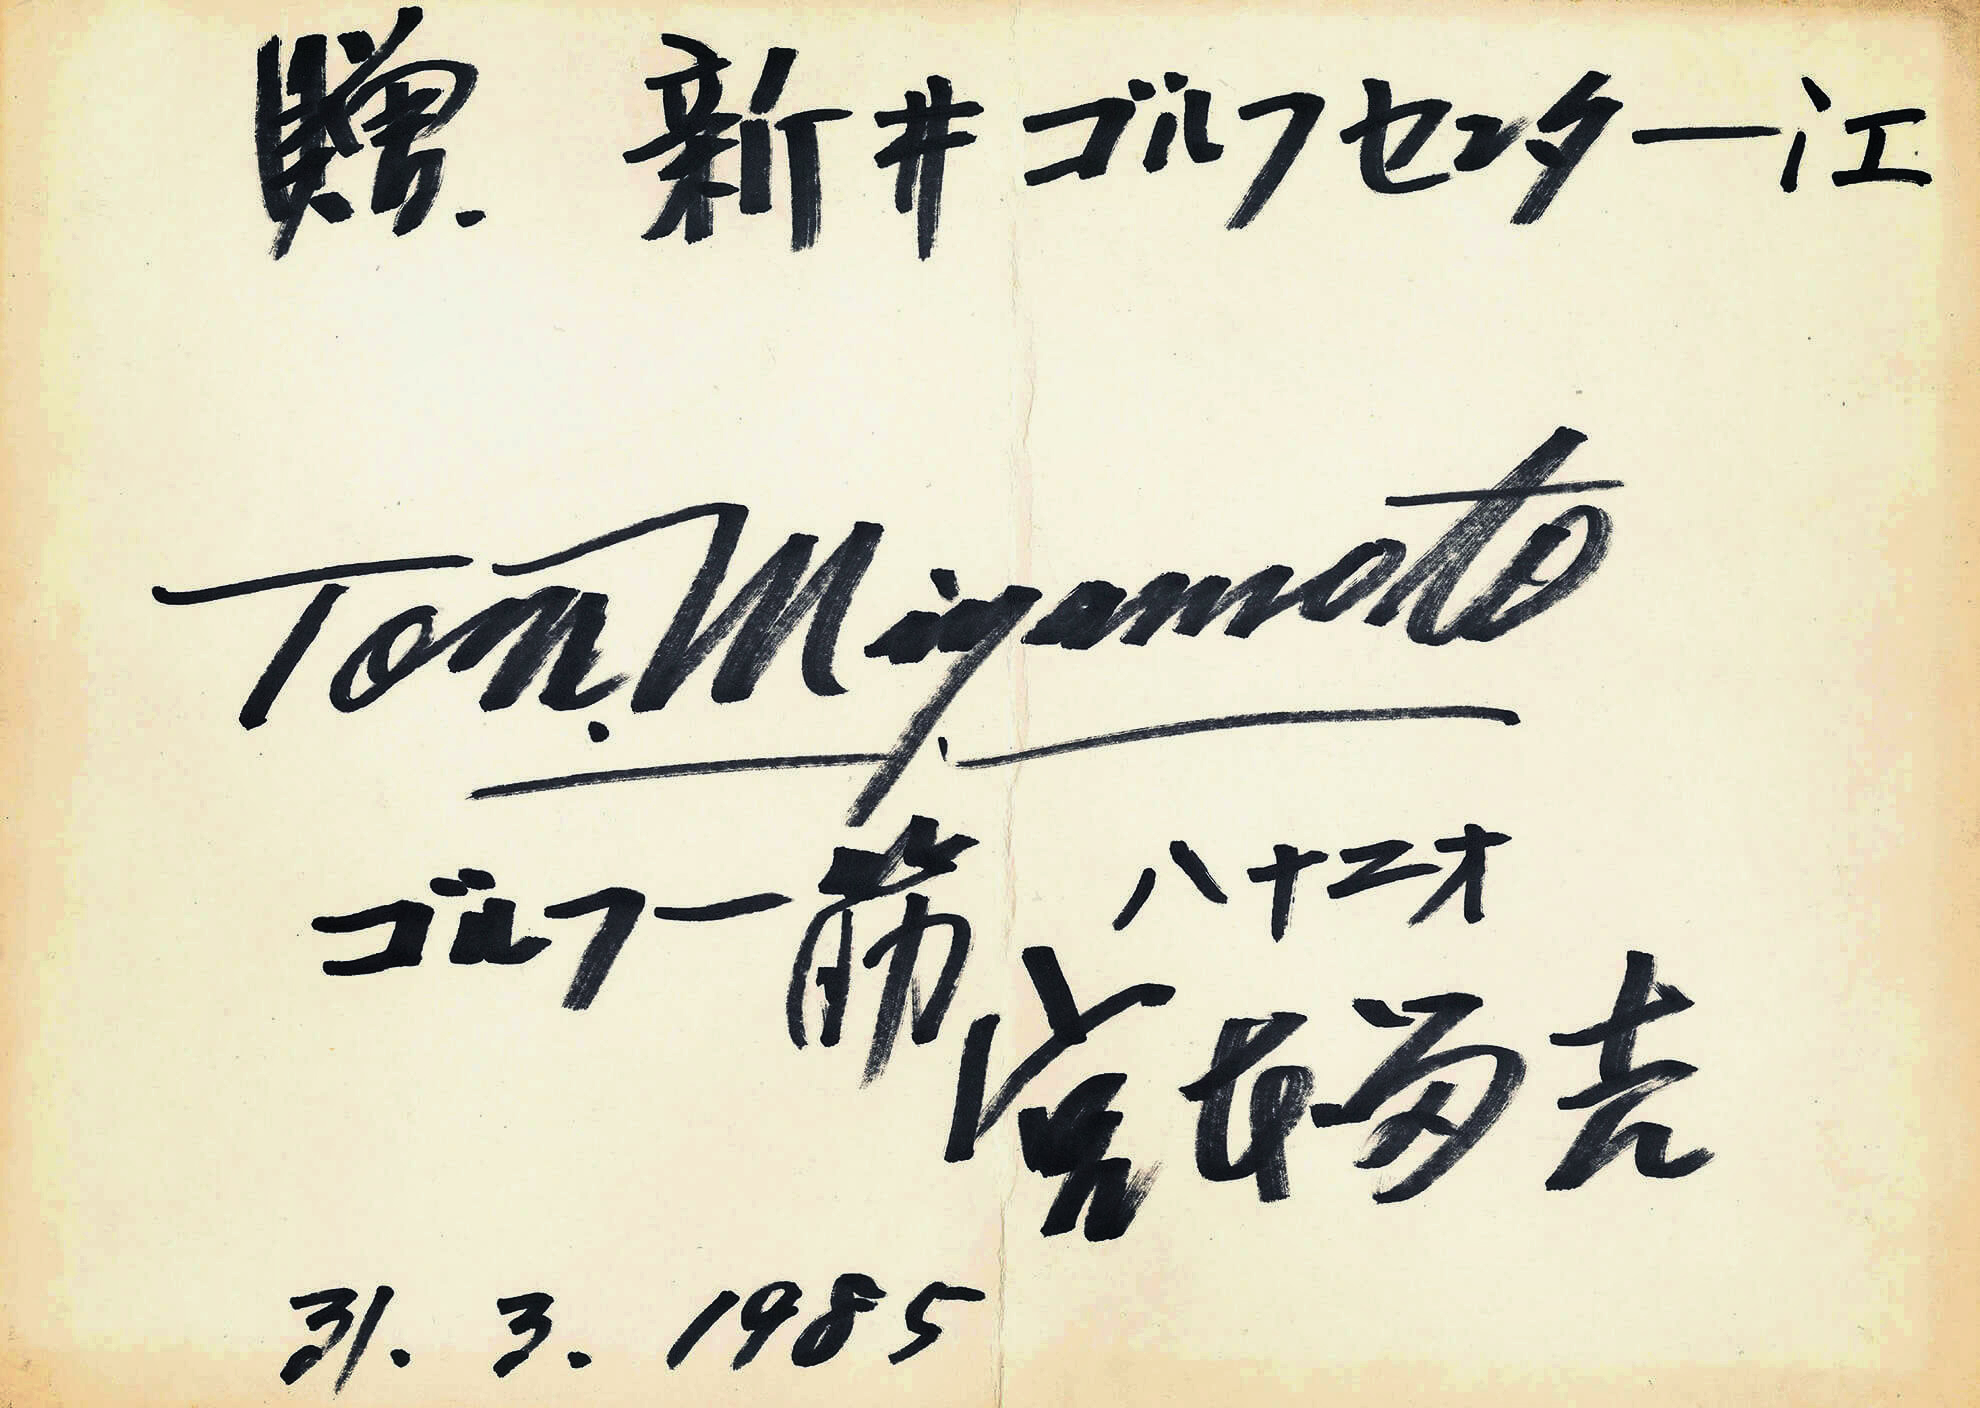 贈. 新井ゴルフセンター江
Tom. Miyamoto
ゴルフ一筋
八十二才
宮本留吉
31. 3. 1985